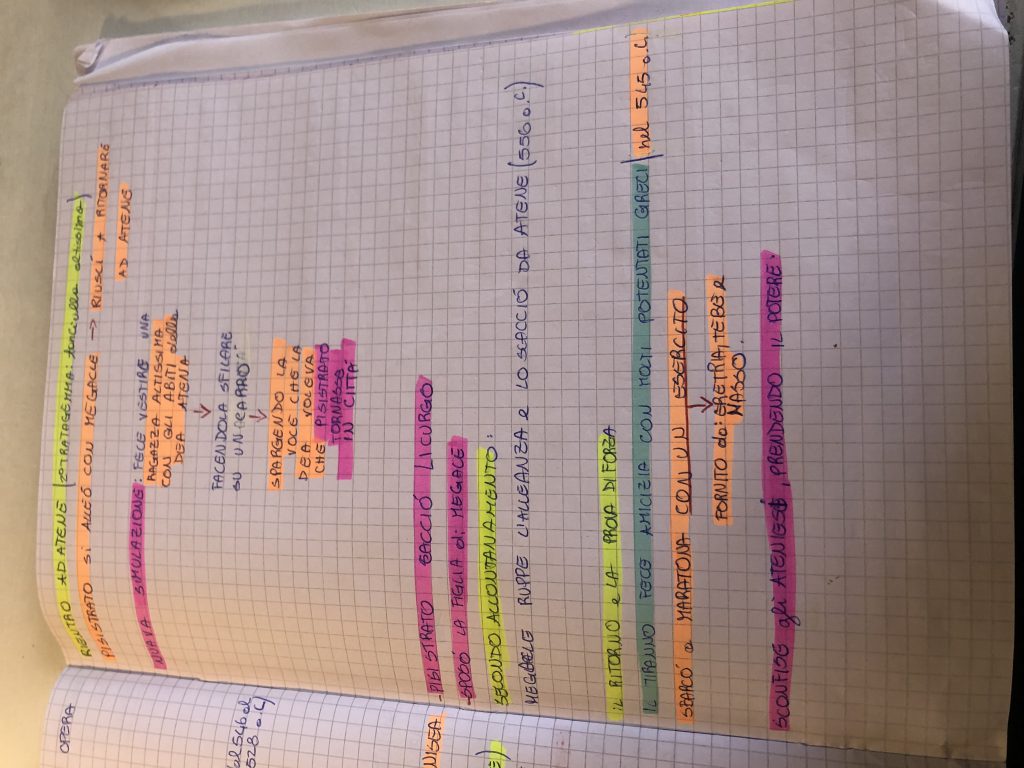 RIENTRO AD ATENE (STRATAGEMMA: fanciulla altissima)
PISISTRATO SI ALLEÓ CON MEGACLE → RIUSCÍ A RITORNARE
AD ATENE
NUOVA SIMULAZIONE: FECE VESTIRE UNA
RAGAZZA ALTISSIMA
CON GLI ABITI della
DEA ATENA
↓
FACENDOLA SFILARE
SU UN CARRO
↓
SPARGENDO LA
VOCE CHE LA
DEA VOLEVA
CHE PISISTRATO
TORNASSE
IN CITTÀ
- PISISTRATO CACCIÒ LICURGO
- SPOSÓ LA FIGLIA di MEGACE
SECONDO ALLONTANAMENTO:
MEGACLE RUPPE L'ALLEANZA E LO SCACCIÒ DA ATENE (556 a.C.)
IL RITORNO e LA PROVA DI FORZA
IL TIRANNO FECE AMICIZIA CON MOLTI POTENTATI GRECI (nel 545 a.C)
SBARCÓ a MARATONA CON UN ESERCITO
↓
FORNITO da: ERETRIA, TEBE E
NASSO.
SCONFISSE gli ATENIESI, PRENDENDO IL POTERE.
OPERA
al 546 al
528 a.C)
NISSA
E)